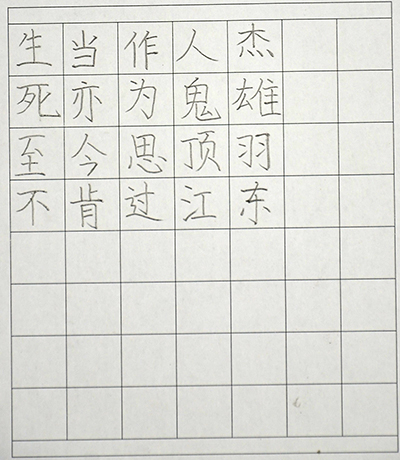 生当作人杰
死亦为鬼雄
至今思顶羽
不肯过江东